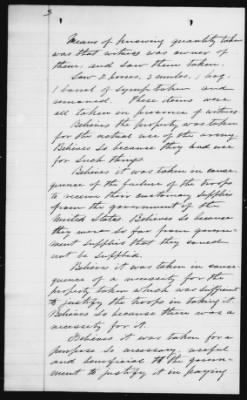 3
Means of knowing quantity taken
was that witness was owner of
them, and saw them taken.
Saw 2 horses, 2 mules, 1 hog,
1 barrel of syrup taken and
removed. These items were
all taken in presence of witness
Believes the property was taken
for the actual use of the army.
Believes so because they had use
for such things.
Believes it was taken in conse-
quence of the failure of the troops
to receive their customary supplies
from the government of the
United States. Believes so because
they were so far from govern-
ment supplies that they could
not be supplied.
Believes it was taken in conse-
quence of a necessity for the
property taken which was sufficient
to justify the troops in taking it.
Believes so because there was a
necessity for it.
Believes it was taken for a
purpose so necessary, useful
and beneficial to the govern-
ment to justify it in paying